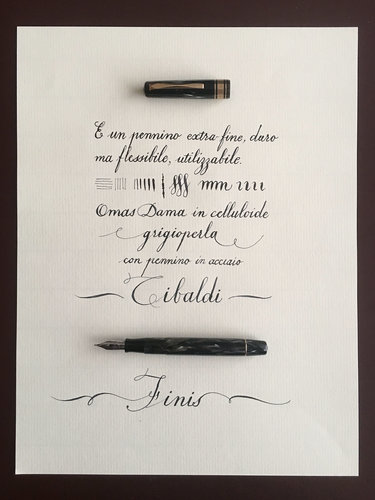 È un pennino extra-fine, duro
ma flessibile, utilizzabile.
Omas Dama in celluloide
grigioperla
con pennino in acciaio
Tibaldi
Finis